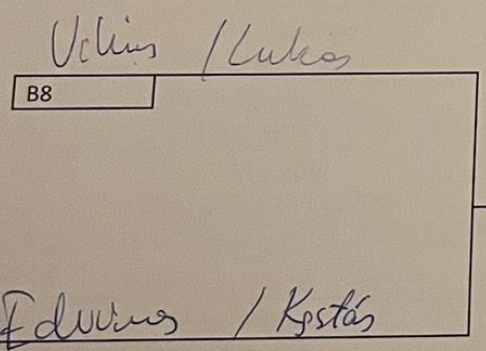 Vilius / Lukas
B8
Edvinas / Kęstas